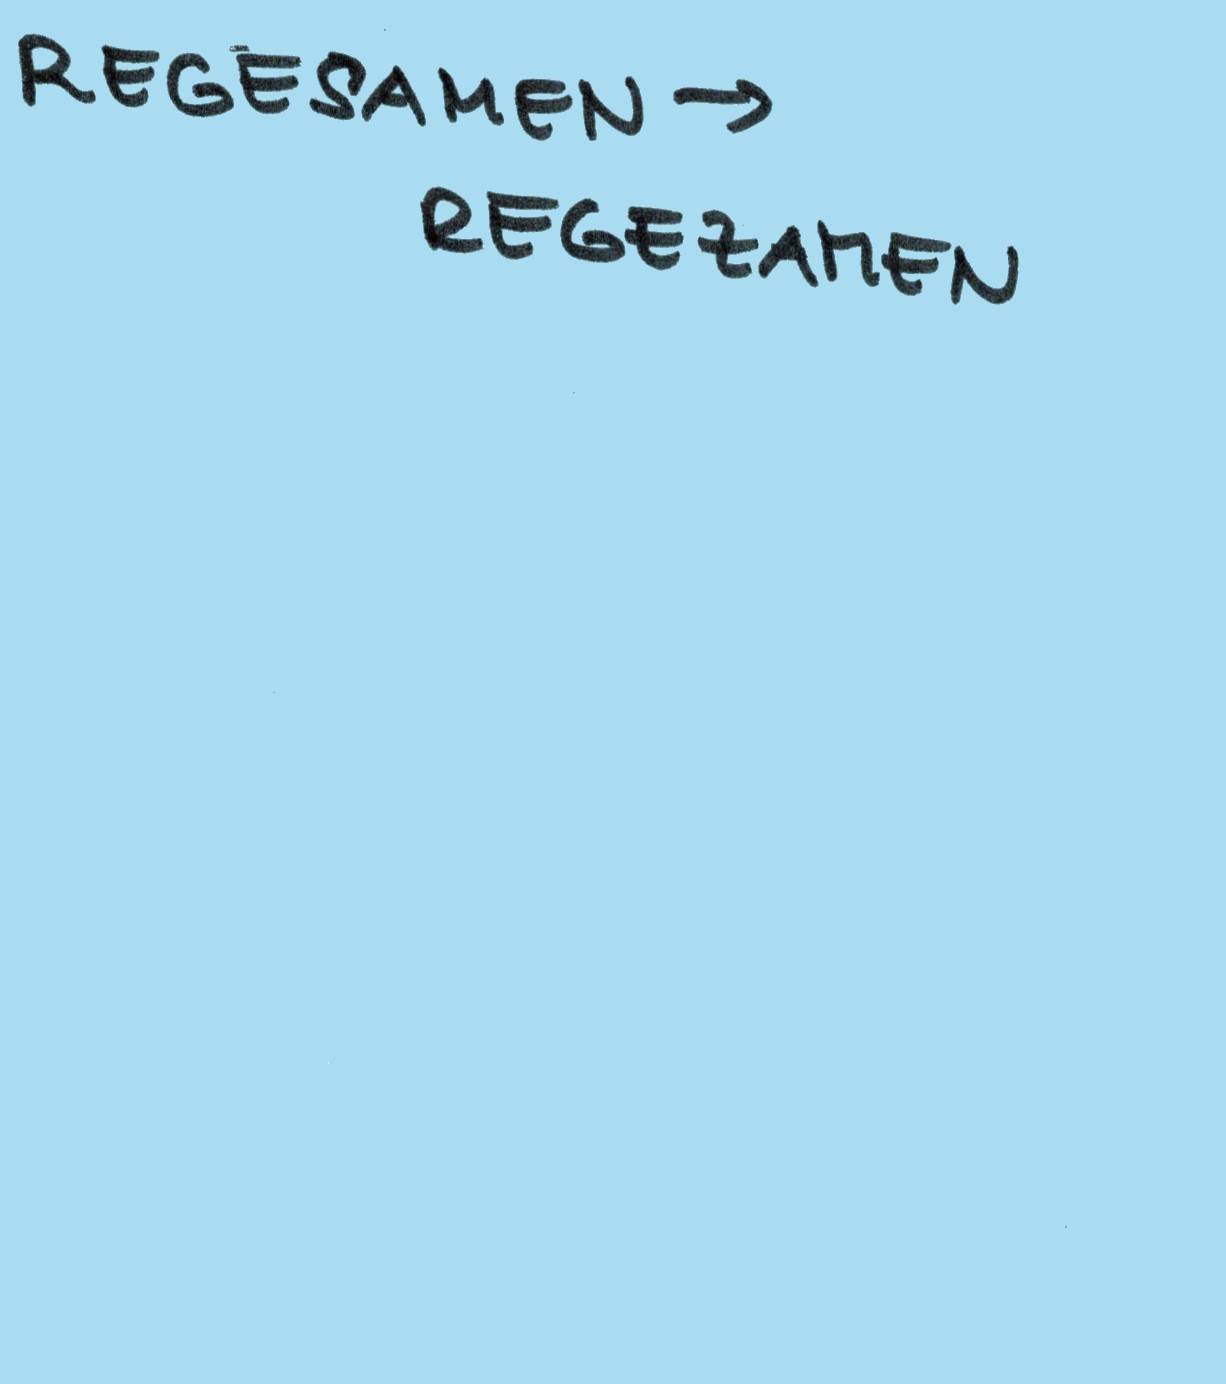 REGESAMEN →
REGEZAMEN